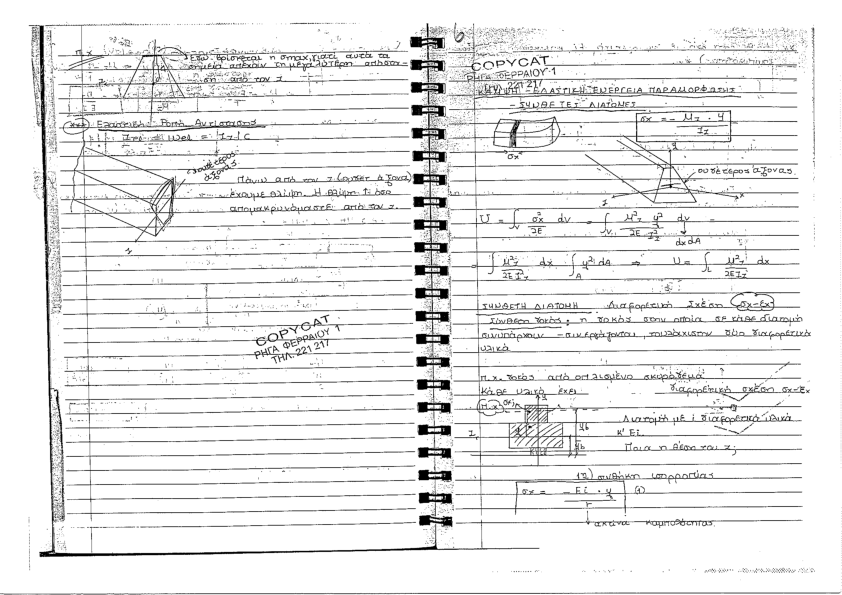 π.χ.
Εδώ βρίσκεται η σmax, γιατί αυτά τα
σημεία απέχουν τη μεγαλύτερη απόστα-
ση από τον z
Ελαστική Ροπή Αντίστασης
Wel = Iz / c
ουδέτερος
άξονας
Πάνω από τον z (ουδέτ. άξονα)
έχουμε θλίψη. Η θλίψη ↑ όσο
απομακρυνόμαστε από τον z.
z
COPYCAT
ΡΗΓΑ ΦΕΡΡΑΙΟΥ 1
ΤΗΛ. 221 217
6
COPYCAT
ΡΗΓΑ ΦΕΡΡΑΙΟΥ 1
ΤΗΛ. 221 217
ΚΑΜΨΗ - ΕΛΑΣΤΙΚΗ ΕΝΕΡΓΕΙΑ ΠΑΡΑΜΟΡΦΩΣΗΣ
- ΣΥΝΘΕΤΕΣ ΔΙΑΤΟΜΕΣ
σx = - Mz · y / Iz
σx
y
ουδέτερος άξονας
z
x
U = ∫v σx² / 2E dv = ∫v M²z y² / 2E I²z dv =
dx dA
= ∫ M²z / 2E I²z dx ∫A y² dA ⇒ U = ∫L M²z / 2E Iz dx
ΣΥΝΘΕΤΗ ΔΙΑΤΟΜΗ Διαφορετική Σχέση σx-εx
Σύνθετη δοκός: η δοκός στην οποία σε κάθε διατομή
συνυπάρχουν - συνεργάζονται, τουλάχιστον δύο διαφορετικά
υλικά
π.χ. δοκός από οπλισμένο σκυρόδεμα
Κάθε υλικό έχει διαφορετική σχέση σx-εx
π.χ.
y
Διατομή με i διαφορετικά υλικά
κ' Ei.
yb
Ποια η θέση του z;
1η) συνθήκη ισορροπίας
σx = - Ei · y / r (1)
ακτίνα καμπυλότητας